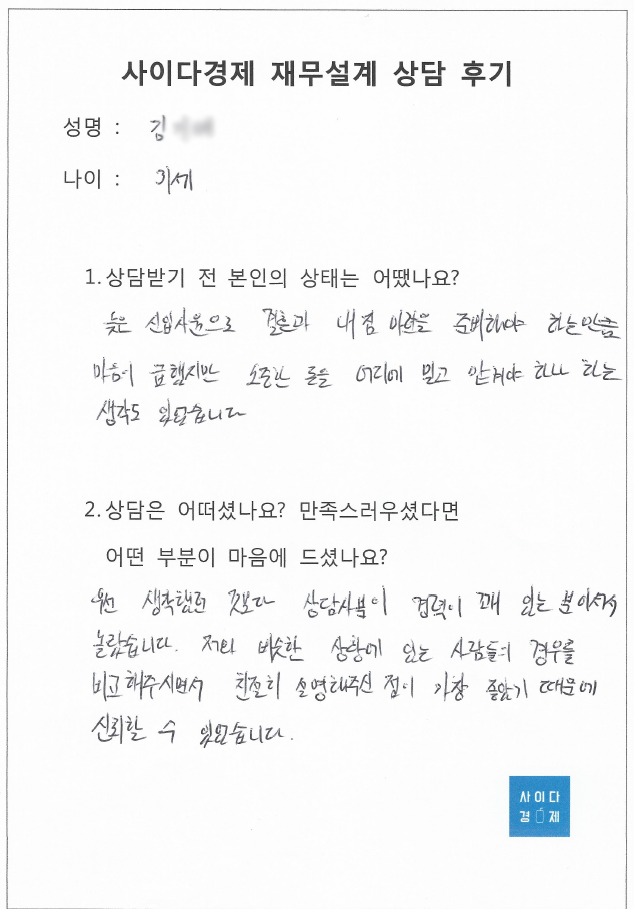 사이다경제 재무설계 상담 후기
성명 : 김
나이 : 31세
1. 상담받기 전 본인의 상태는 어땠나요?
늦은 신입사원으로 결혼과 내 집 마련을 준비해야 하는 만큼
마음이 급했지만 소중한 돈을 어디에 믿고 맡겨야 하나 하는
생각도 있었습니다
2. 상담은 어떠셨나요? 만족스러우셨다면
어떤 부분이 마음에 드셨나요?
우선 생각했던 것보다 상담사분이 경력이 꽤 있는 분이셔서
놀랐습니다. 저와 비슷한 상황에 있는 사람들의 경우를
비교해주시면서 친절히 설명해주신 점이 가장 좋았기 때문에
신뢰할 수 있었습니다.
사이다
경제